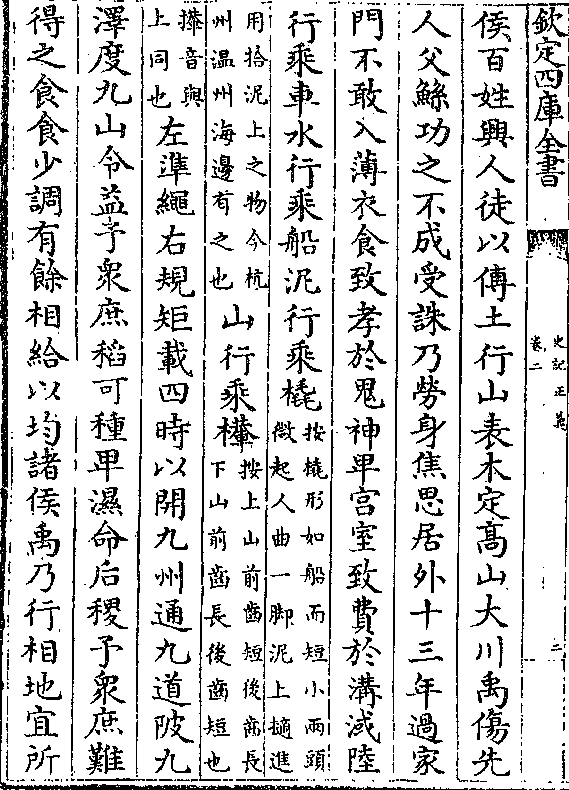 欽定四庫全書
史記正義
卷二
二
侯百姓興人徒以傅土行山表木定髙山大川禹傷先
人父鯀功之不成受誅乃勞身焦思居外十三年過家
門不敢入薄衣食致孝於鬼神卑宫室致費於溝淢陸
行乘車水行乘船泥行乘橇按橇形如船而短小兩頭
微起人曲一脚泥上擿進
用拾泥上之物今杭
州温州海邊有之也
山行乘檋按上山前齒短後齒長
下山前齒長後齒短也
檋音與
上同也
左準繩右規矩載四時以開九州通九道陂九
澤度九山令益予衆庶稻可種卑濕命后稷予衆庶難
得之食食少調有餘相給以均諸侯禹乃行相地宜所